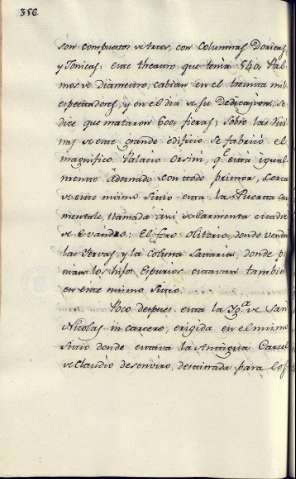 356
són compuestos de tres, con Columnas Doricas,
y Jonicas: este theatro que tenia 540, Pal-
mos de Diametro, cabian en el treinta mil
espectadores, y en el dia de su Dedicazion, se
dice que mataron 600, fieras; sobre las Rui-
nas de este grande edificio se fabricó el
magnifico Palacio Orsini, qe. está igual-
mente Adornado con todo primor, Cerca
de este mismo Sitio está la Puerta Car-
mentale, llamada asi
de Evandro: El foro Olitorio, donde vendian
las Yervas, y la Coluna Lactaria, donde po-
nian los hijos Espurios estavan tambien
en este mismo Sitio.
Poco despues esta la Ygª. de San
Nicolas in carcere, erigida en el mismo
Sitio donde estava la Antigua Carcel
de Claudio desenviro, destinada para los